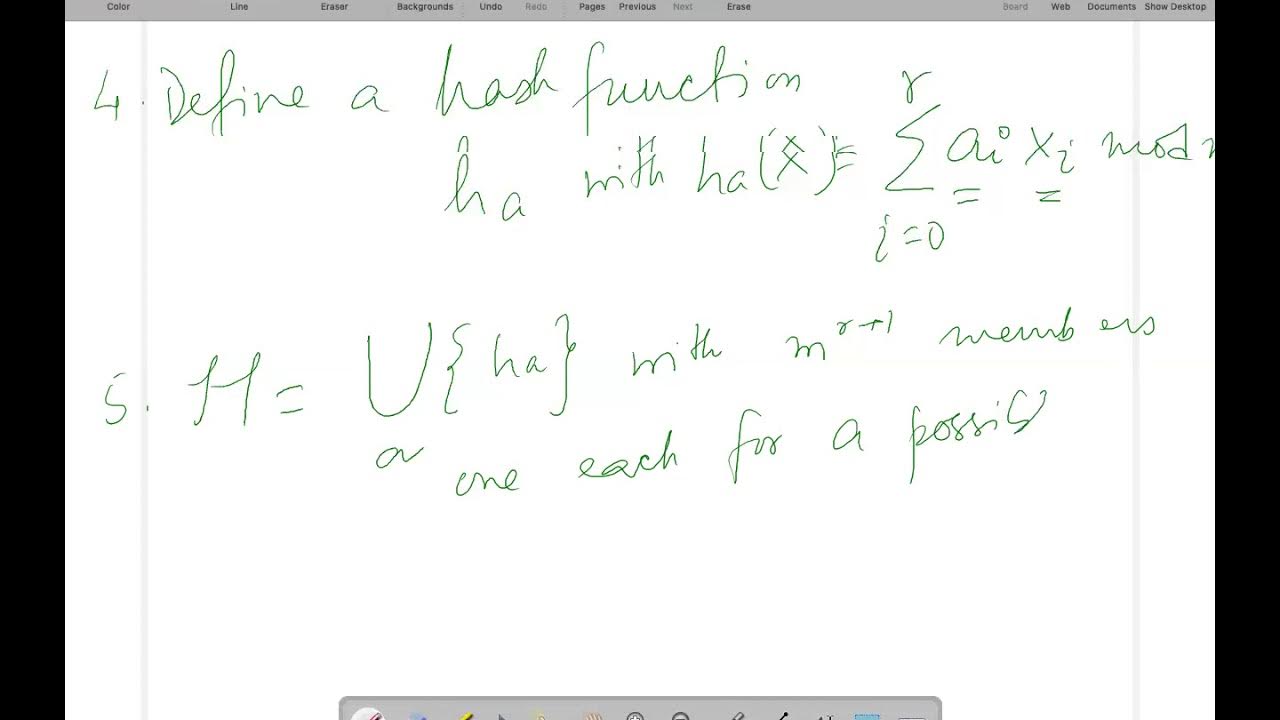 Color Line Eraser Backgrounds Undo Redo Pages Previous Next Erase Board Web Documents Show Desktop
4. Define a hash function
h_a with h_a(x) = \sum_{i=0}^{r} a_i x_i mod
5. H = \bigcup_a {h_a} with m^{r+1} members
one each for a possib